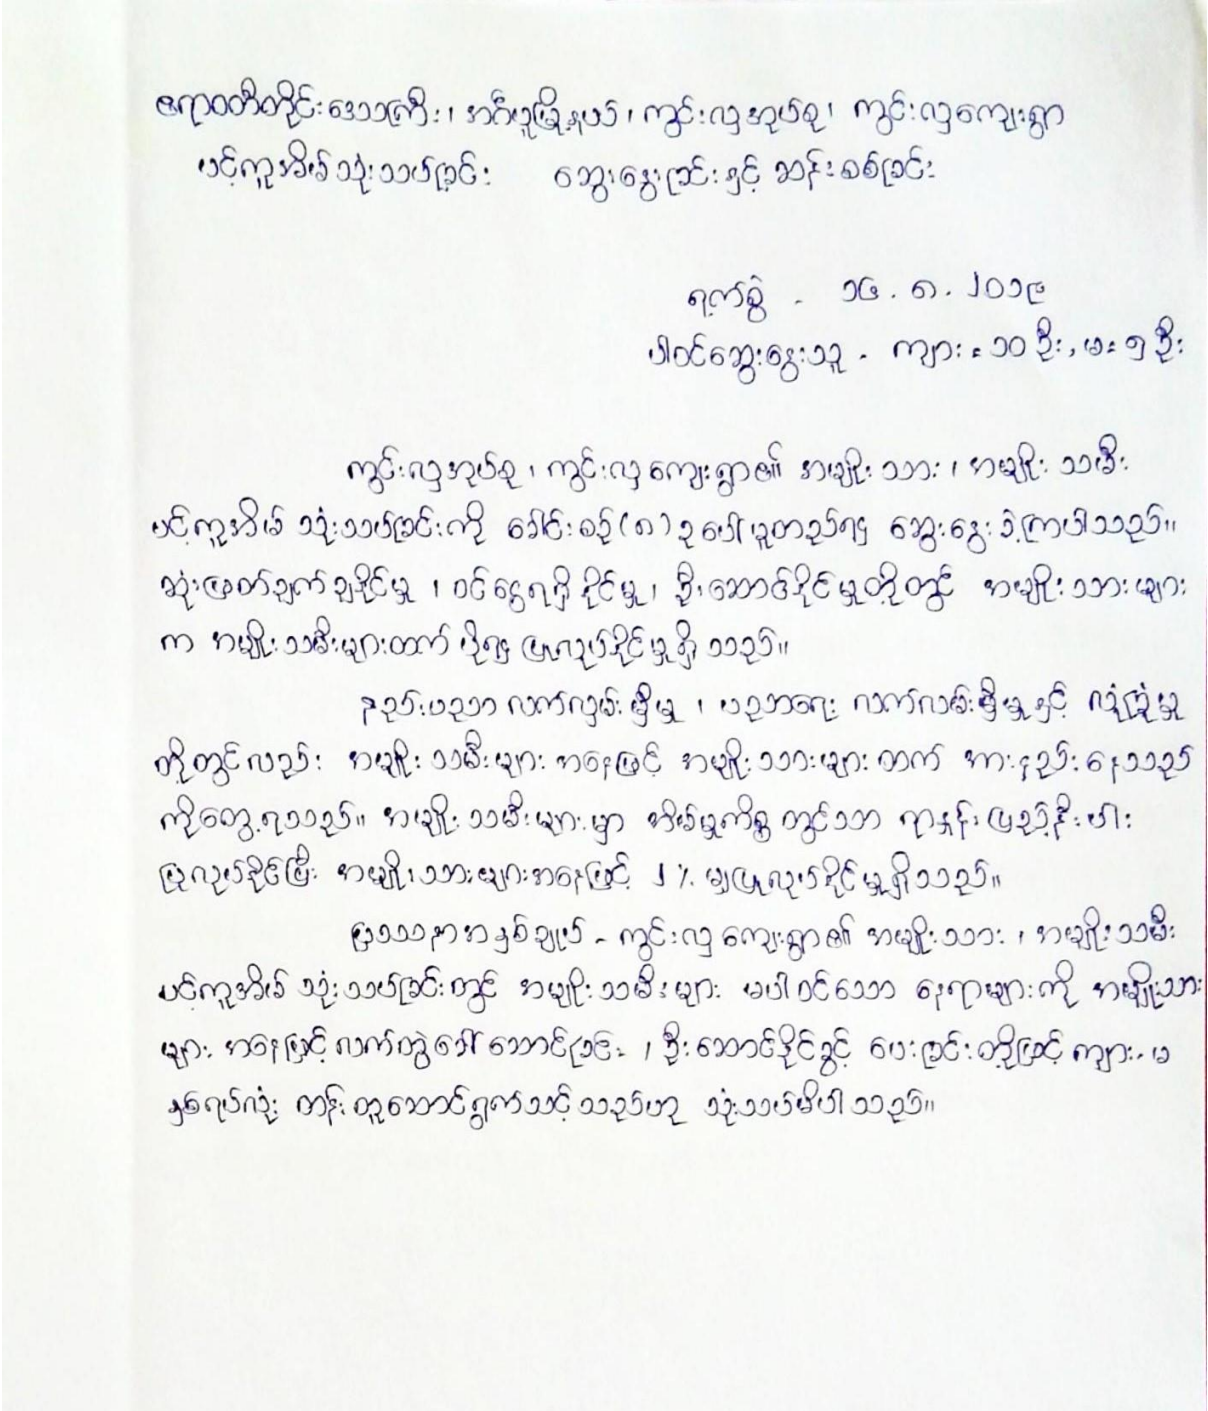 ဧရာဝတီတိုင်းဒေသကြီး၊ အင်္ဂပူမြို့နယ်၊ ကွင်းလှအုပ်စု၊ ကွင်းလှကျေးရွာ
ပင့်ကူအိမ်သုံးသပ်ခြင်း ဆွေးနွေးခြင်းနှင့် ဆန်းစစ်ခြင်း
ရက်စွဲ - ၁၆.၈.၂၀၁၉
ပါဝင်ဆွေးနွေးသူ - ကျား = ၁၀ ဦး, မ = ၅ ဦး
ကွင်းလှအုပ်စု၊ ကွင်းလှကျေးရွာ၏ အမျိုးသား၊ အမျိုးသမီး
ပင့်ကူအိမ် သုံးသပ်ခြင်းကို ခေါင်းစဉ် (၈) ခုပေါ်မူတည်၍ ဆွေးနွေးခဲ့ကြပါသည်။
ဆုံးဖြတ်ချက်ချနိုင်မှု၊ ဝင်ငွေရရှိနိုင်မှု၊ ဦးဆောင်နိုင်မှုတို့တွင် အမျိုးသားများ
က အမျိုးသမီးများထက် ပို၍ ပြုလုပ်နိုင်မှုရှိသည်။
နည်းပညာ လက်လှမ်းမှီမှု၊ ပညာရေး လက်လှမ်းမှီမှုနှင့် လုံခြုံမှု
တို့တွင်လည်း အမျိုးသမီးများ အနေဖြင့် အမျိုးသားများထက် အားနည်းနေသည်
ကိုတွေ့ရသည်။ အမျိုးသမီးများမှာ အိမ်မှုကိစ္စတွင်သာ ရာနှုန်းပြည့်နီးပါး
ပြုလုပ်နိုင်ပြီး အမျိုးသားများအနေဖြင့် ၂ % မျှပြုလုပ်နိုင်မှုရှိသည်။
ပြဿနာအနှစ်ချုပ် - ကွင်းလှကျေးရွာ၏ အမျိုးသား၊ အမျိုးသမီး
ပင့်ကူအိမ် သုံးသပ်ခြင်းတွင် အမျိုးသမီးများ မပါဝင်သော နေရာများကို အမျိုးသား
များ အနေဖြင့် လက်တွဲခေါ်ဆောင်ခြင်း၊ ဦးဆောင်နိုင်ခွင့် ပေးခြင်းတို့ဖြင့် ကျား-မ
နှစ်ရပ်လုံး တန်းတူဆောင်ရွက်သင့်သည်ဟု သုံးသပ်မိပါသည်။